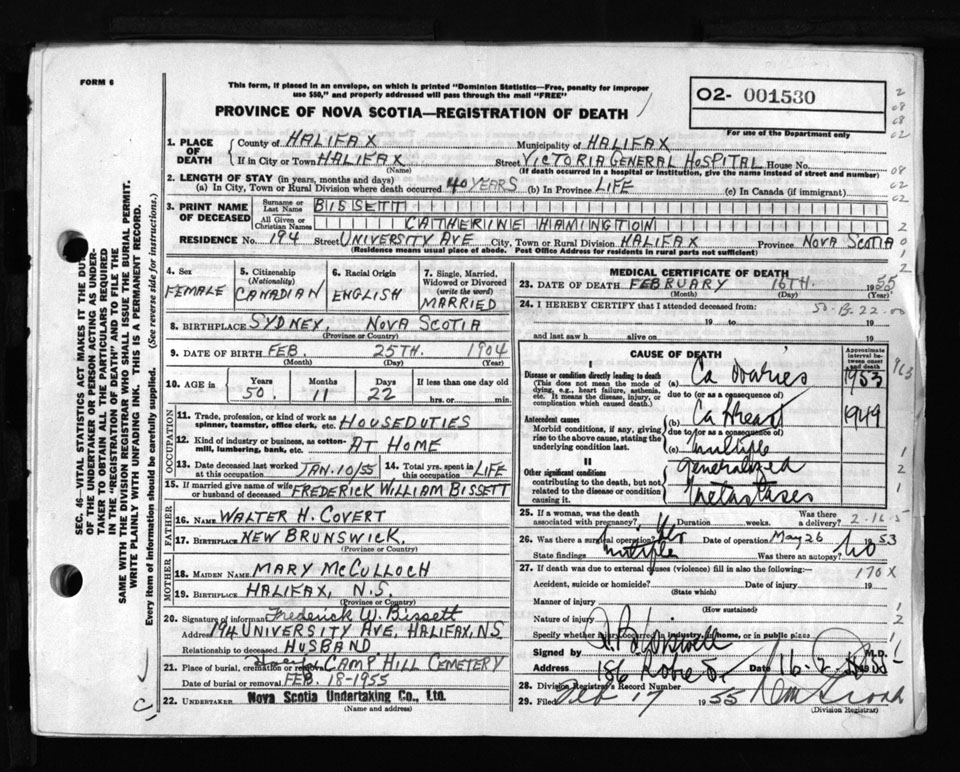 FORM 6
This form, if placed in an envelope, on which is printed "Dominion Statistics—Free, penalty for improper
use $50," and properly addressed will pass through the mail "FREE"
PROVINCE OF NOVA SCOTIA—REGISTRATION OF DEATH
O2- 001530
For use of the Department only
SEC. 46—VITAL STATISTICS ACT MAKES IT THE DUTY
OF THE UNDERTAKER OR PERSON ACTING AS UNDER-
TAKER TO OBTAIN ALL THE PARTICULARS REQUIRED
IN THE "REGISTRATION OF DEATH" AND TO FILE THE
SAME WITH THE DIVISION REGISTRAR WHO SHALL ISSUE THE BURIAL PERMIT.
WRITE PLAINLY WITH UNFADING INK. THIS IS A PERMANENT RECORD.
Every item of information should be carefully supplied. (See reverse side for instructions.)
1. PLACE OF DEATH
County of HALIFAX Municipality of HALIFAX
If in City or Town HALIFAX Street VICTORIA GENERAL HOSPITAL House No.
(Name) (If death occurred in a hospital or institution, give the name instead of street and number)
2. LENGTH OF STAY (in years, months and days)
(a) In City, Town or Rural Division where death occurred 40 YEARS (b) In Province LIFE (c) In Canada (if immigrant)
3. PRINT NAME OF DECEASED
Surname or Last Name BISSETT
All Given or Christian Names CATHERINE HAMINGTION
RESIDENCE No. 194 Street UNIVERSITY AVE City, Town or Rural Division HALIFAX Province NOVA SCOTIA
(Residence means usual place of abode. Post Office Address for residents in rural parts not sufficient)
4. Sex FEMALE
5. Citizenship (Nationality) CANADIAN
6. Racial Origin ENGLISH
7. Single, Married, Widowed or Divorced (write the word) MARRIED
8. BIRTHPLACE SYDNEY, NOVA SCOTIA
(Province or Country)
9. DATE OF BIRTH FEB. 25TH. 1904
(Month) (Day) (Year)
10. AGE in Years 50. Months 11 Days 22 If less than one day old hrs. or min.
OCCUPATION
11. Trade, profession, or kind of work as spinner, teamster, office clerk, etc. HOUSEDUTIES
12. Kind of industry or business, as cotton-mill, lumbering, bank, etc. AT HOME
13. Date deceased last worked at this occupation JAN. 10/55 14. Total yrs. spent in this occupation LIFE
15. If married give name of wife or husband of deceased FREDERICK WILLIAM BISSETT
FATHER
16. NAME WALTER H. COVERT
17. BIRTHPLACE NEW BRUNSWICK.
(Province or Country)
MOTHER
18. MAIDEN NAME MARY MCCULLOCH
19. BIRTHPLACE HALIFAX, N.S.
(Province or Country)
20. Signature of informant Frederick W. Bissett
Address 194 UNIVERSITY AVE, HALIFAX, NS
Relationship to deceased HUSBAND
21. Place of burial, cremation or removal CAMP HILL CEMETERY
Date of burial or removal FEB. 18-1955
22. UNDERTAKER Nova Scotia Undertaking Co., Ltd.
(Name and address)
MEDICAL CERTIFICATE OF DEATH
23. DATE OF DEATH FEBRUARY 16TH. 1955
(Month) (Day) (Year)
24. I HEREBY CERTIFY that I attended deceased from
19 to 19
and last saw h alive on 19
CAUSE OF DEATH
Approximate interval between onset and death
I
Disease or condition directly leading to death (a) Ca Ovaries 1953
(This does not mean the mode of dying, e.g., heart failure, asthenia, etc. It means the disease, injury, or complication which caused death.)
due to (or as a consequence of)
Antecedent causes (b) 1949
Morbid conditions, if any, giving rise to the above cause, stating the underlying condition last.
due to (or as a consequence of)
(c) multiple
II
Other significant conditions generalized
contributing to the death, but not related to the disease or condition causing it. metastases
25. If a woman, was the death associated with pregnancy? Duration weeks. Was there a delivery?
26. Was there a surgical operation? Yes Date of operation May 26 1953
State findings multiple Was there an autopsy? No
27. If death was due to external causes (violence) fill in also the following:— 170 X
Accident, suicide or homicide? Date of injury 19
(State which)
Manner of injury
(How sustained)
Nature of injury
Specify whether injury occurred in industry, in home, or in public places
Signed by M.D.
Address 186 Date 16-2
28. Division Registrar's Record Number
29. Filed Feb 17 1955
(Division Registrar)